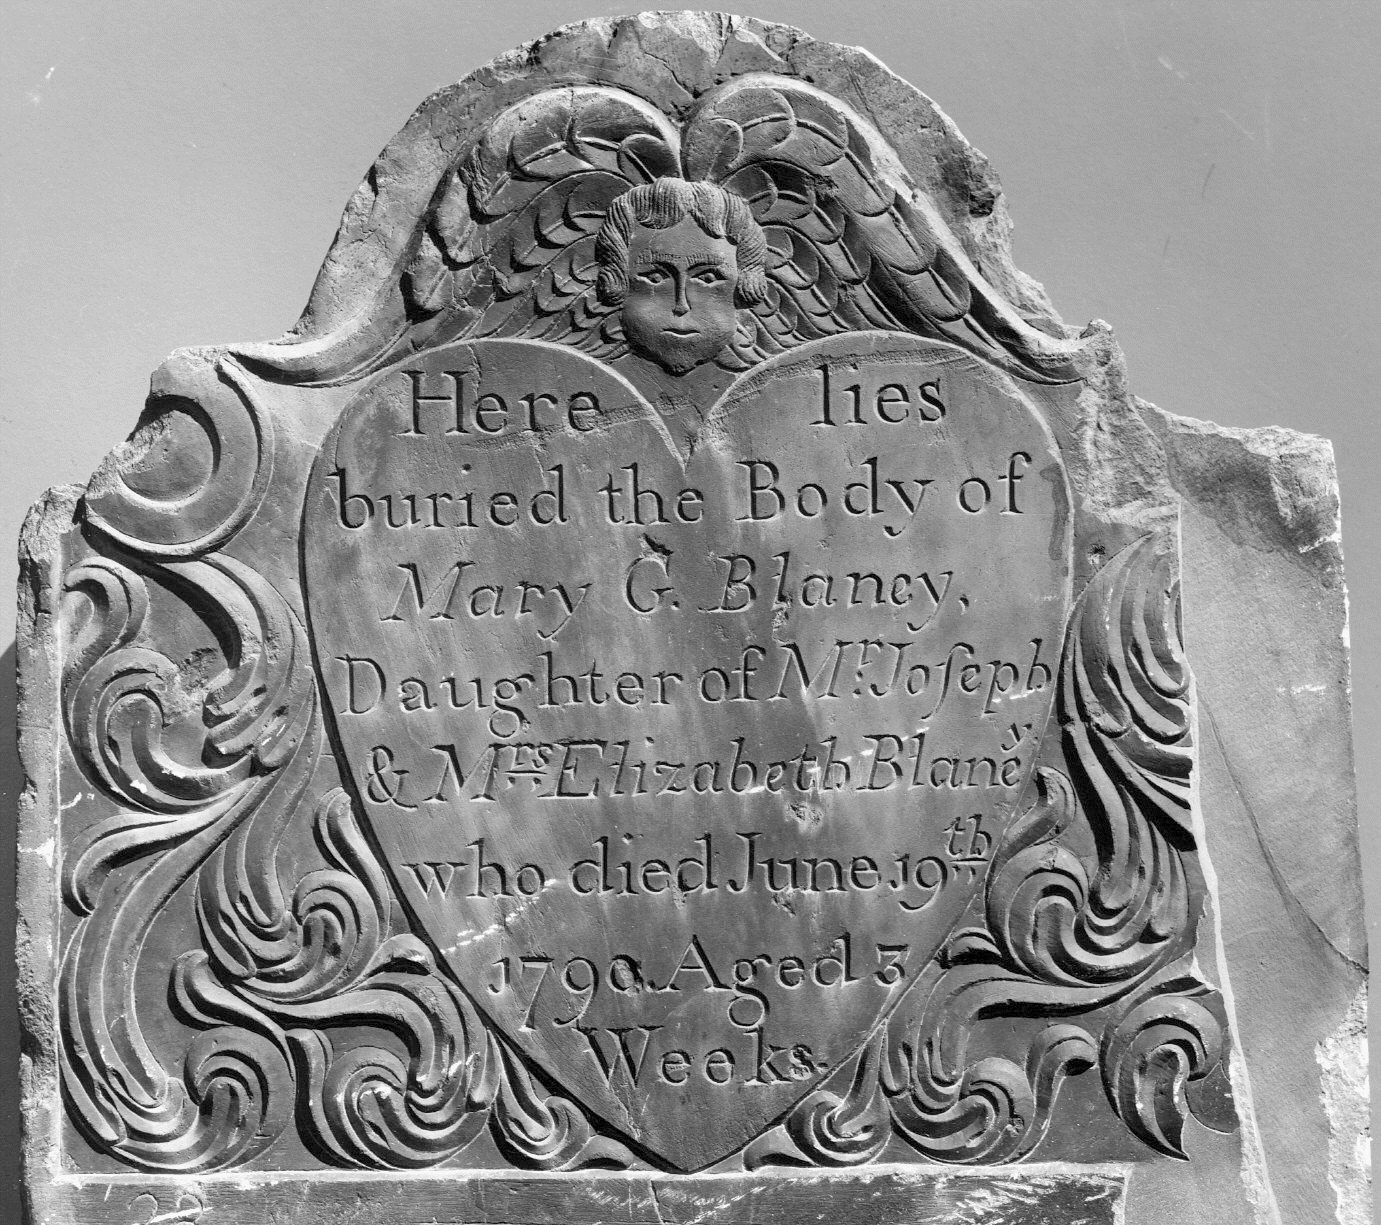 Here lies
buried the Body of
Mary G. Blaney,
Daughter of Mr. Joſeph
& Mrs. Elizabeth Blaney
who died June 19th
1790. Aged 3
Weeks.